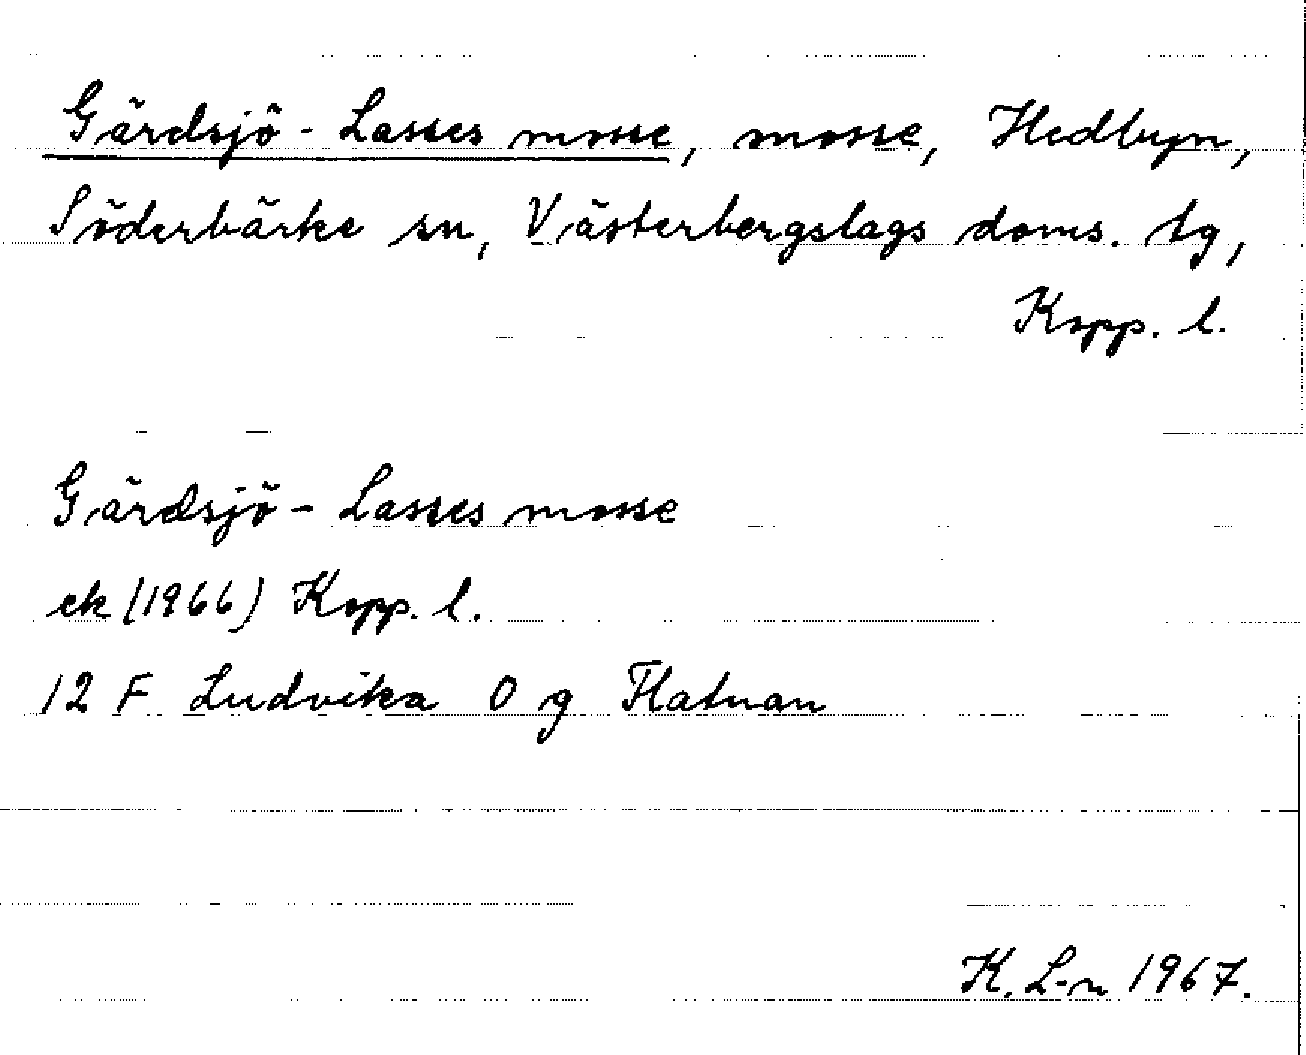 Gärdsjö-Lasses mosse, mosse, Hedbyn,
Söderbärke sn, Västerbergslags doms. tg,
Kopp. l.
Gärdsjö-Lasses mosse
ek (1966) Kopp. l.
12 F Ludvika 0 g Flatnan
K. L-n 1967.